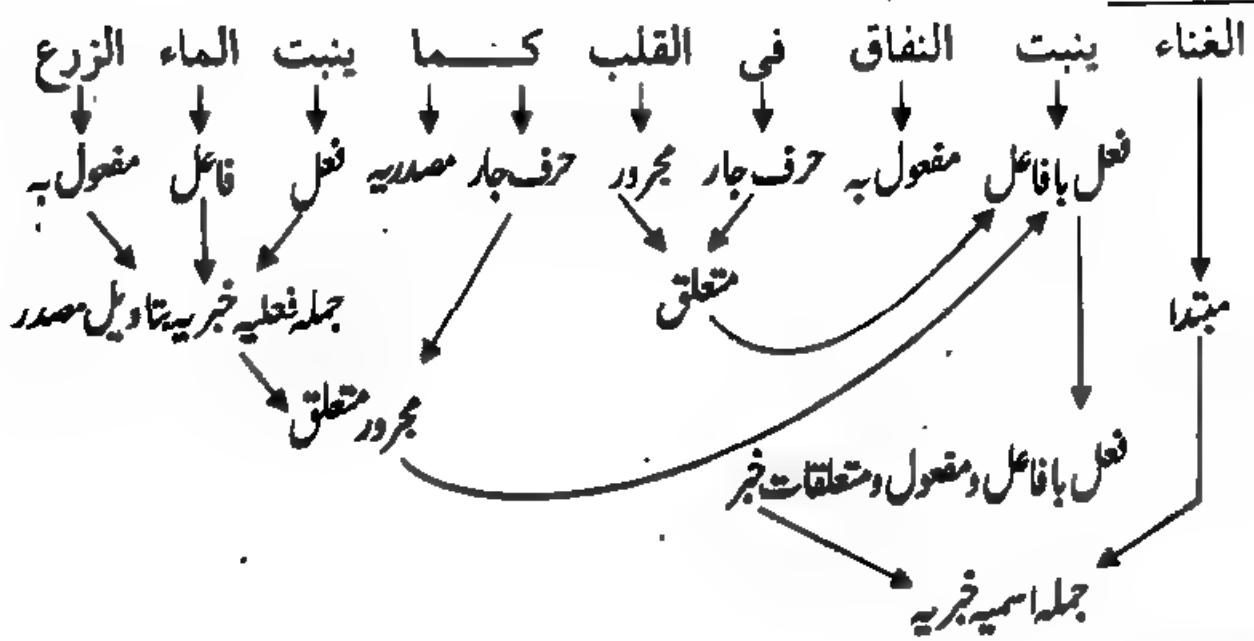 الغناء ينبت النفاق فى القلب كـــما ينبت الماء الزرع
فعل بافاعل مفعول بہ حرف جار مجرور حرف جار مصدریہ فعل فاعل مفعول بہ
مبتدا متعلق جملہ فعلیہ خبریہ بتاویل مصدر
مجرور متعلق
فعل بافاعل ومفعول ومتعلقات خبر
جملہ اسمیہ خبریہ